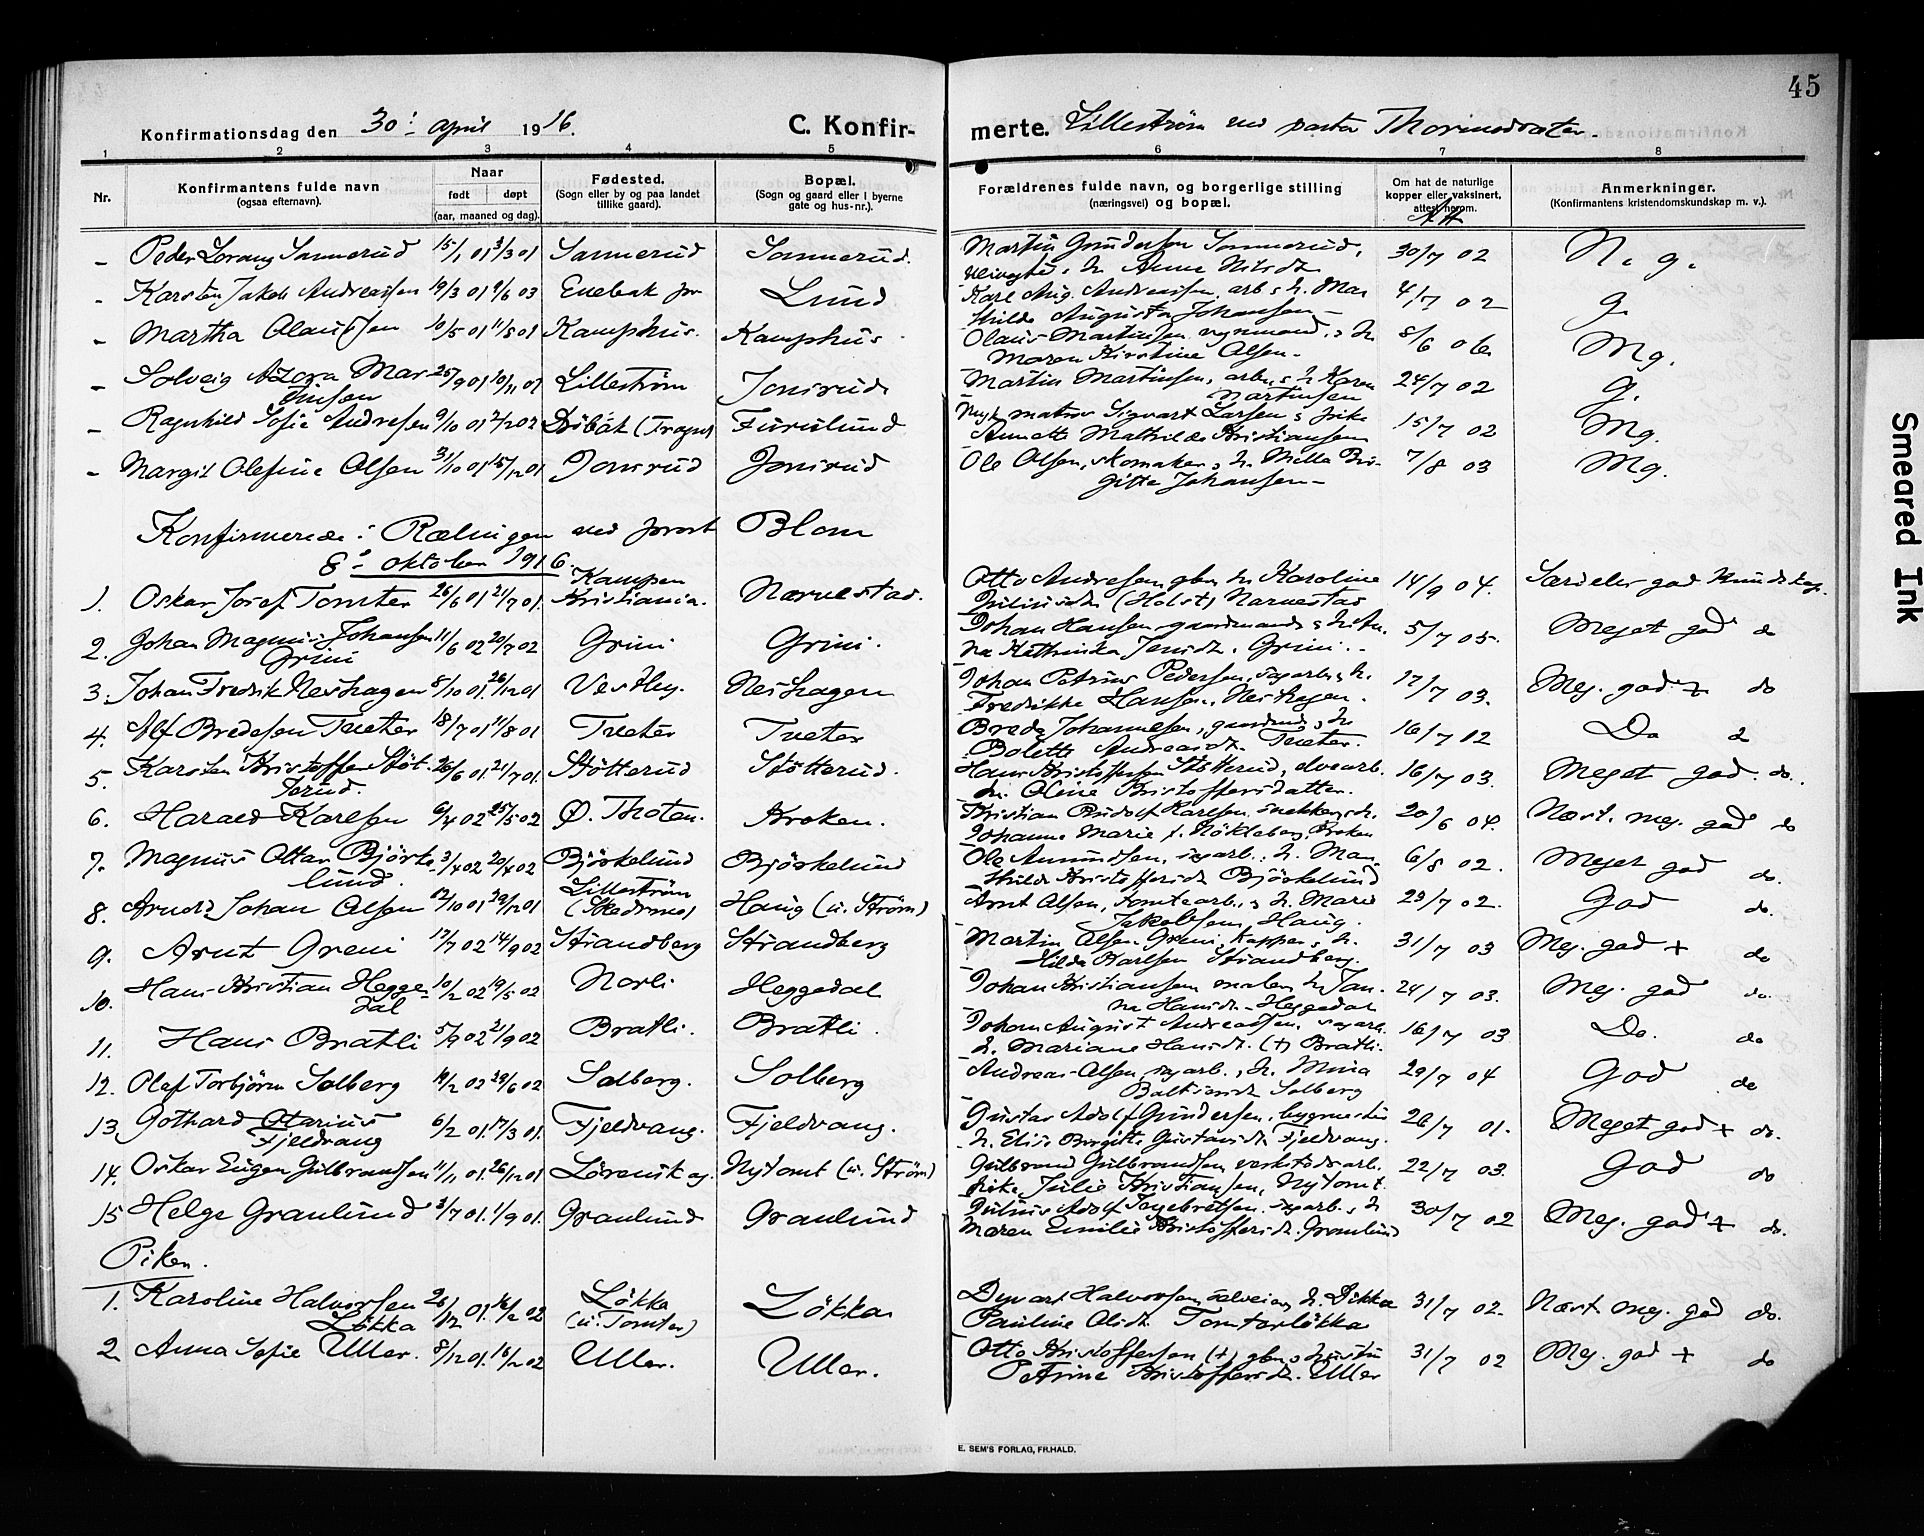 45
Konfirmationsdag den 30: april 1916. C. Konfirmerte. Lillestrøm ved pastor
1 2 3 4 5 6 7 8
Nr. Konfirmantens fulde navn (ogsaa efternavn). Naar født døpt (aar, maaned og dag). Fødested. (Sogn eller by og paa landet tillike gaard). Bopæl. (Sogn og gaard eller i byerne gate og hus-nr.). Forældrenes fulde navn, og borgerlige stilling (næringsvei) og bopæl. Om hat de naturlige kopper eller vaksinert, attest herom. Anmerkninger. (Konfirmantens kristendomskundskap m. v.).
- Peder Lorang Sannerud 15/1 01 3/3 01 Sannerud Sannerud. Martin Gundersen Sannerud, 30/7 02 N. g.
h. Anne Nilsdt.
- Karsten Jakob Andreassen 19/3 01 Enebak pr Lund Karl Aug. Andreassen, arb. s h. Mat 4/7 02 g.
hilde Augusta Johansen -
- Martha Olaussen 10/5 01 11/8 01 Kamphus. Kamphus. Olaus Martinsen s h 8/6 06 Mg.
Maren Kirstine Olsen.
- Solveig Azora Mar 25/9 01 10/11 01 Lillestrøm Jonsrud Martin Martinsen, arb. s h Karen 24/7 02 g.
tinsen Martinsen
- Ragnhild Sofie Andresen 9/10 01 Drøbak (Frogn) Furulund Sigvart Larsen s pike 15/7 02 Mg.
Annette Mathilde Kristiansen
- Margit Olefine Olsen 31/10 01 15/12 01 Jonsrud Jonsrud Ole Olsen, skomaker, h. Milla Bir- 7/8 03 Mg.
gitte Johansen -
Konfirmerede i Rælingen ved prost Blom
8: oktober 1916.
1. Oskar Josef Tomter 26/6 01 21/7 01. Kampen Kristiania. Nærnestad. Otto Andresen gbr. h. Karoline 14/9 04. Særdeles god kundskap.
Juliusdt. (Holst) Nærnestad
2. Johan Magnus Johansen 11/6 02 20/7 02 Grini Grini. Johan Hansen, gaardmand s h An- 5/7 05. Meget god do
Grini na Kathinka Jensdt. Grini.
3. Johan Fredrik Neshagen 8/10 01. 26/12 01 Vestby. Neshagen Johan Petrus Pedersen, sagarb., h. 17/7 03. Meg. god + do
Fredrikke Hansen, Neshagen.
4. Alf Bredesen Tveter 18/7 01 11/8 01 Tveter Tveter Brede Johannesen, gaardmd., h 16/7 02 Do
Bolette Andreasdt. Tveter.
5. Karsten Kristoffer Støt- 26/6 01. 21/7 01. Støtterud Støtterud. Hans Kristoffersen Støtterud, elvearb. 16/7 03. Meget god. do.
terud. h. Oline Kristoffersdatter.
6. Harald Karlsen 6/4 02 25/5 02 Ø. Thoten. Kroken. Kristian Rudolf Karlsen snekker, h. 20/6 04. Næst. meg. god do
Johanne Marie f. Nökleberg, Kroken
7. Magnus Ottar Bjørke- 3/4 02 20/4 02 Bjørkelund Bjørkelund Ole Amundsen, sagarb., h. Mat- 6/8 02. Meget god do.
lund. hilde Kristoffersdt. Bjørkelund
8. Arnold Johan Olsen 12/10 01 29/12 01 Lillestrøm (Skedsmo) Haug (u. Strøm) Arnt Olsen, tomtearb., s h. Marie 23/7 02. God do.
Jakobsen, Haug.
9. Arnt Greni 17/7 02 14/9 02 Strandberg Strandberg Martin Olsen Greni, s h. 31/7 03 Meg. god + do
Hilda Karlsen Strandberg.
10. Hans Kristian Hegge- 10/2 02 19/5 02 Norli Heggedal Johan Kristiansen maler, h Jan- 24/7 03. Meg. god do.
dal na Hansdt. Heggedal
11. Hans Bratli 5/7 02 21/9 02 Bratli. Bratli. Johan August Andreassen. sagarb. 16/7 03 Do. do
h. Mariane Hansdt. (+) Bratli.
12. Olaf Torbjørn Solberg 14/2 02 29/6 02 Solberg. Solberg Andreas Olsen, sagarb., h. Mina 29/7 04 God do
Baltsersdt. Solberg
13. Gothard Otarius 6/2 01. 17/3 01. Fjeldvang. Fjeldvang. Gustav Adolf Gundersen, bygmester 26/7 01. Meget god + do.
Fjeldvang h. Elise Birgitte Gustavsdt. Fjeldvang.
14. Oskar Eugen Gulbrandsen 11/11 01. 26/12 01 Lørenskog. Nytomt (u. Strøm) Gulbrand Gulbrandsen, verkstedsarb. 22/7 03. God do
pike Julie Kristiansen, Nytomt.
15 Helge Granlund 3/7 01. 1/9 01. Granlund Granlund Julius Adolf Ingebretsen. sagarb. s h 30/7 02 Meg. god + do.
Maren Emilie Kristoffersdt. Granlund
Piker.
1. Karoline Halvorsen 26/12 01. 16/2 02 Løkka (u. Tomter) Løkka Halvorsen h. Dikka 31/7 02. Næst. meg. god do.
Løkka Pauline Olsdt. Tomterløkka
2. Anna Sofie Uller. 8/12 01. 16/2 02 Uller. Uller. Otto Kristoffersen (+) gbr. s hustru 31/7 02 Meg. god + do
Petrine Kristoffersdt. Uller
E. SEM'S FORLAG, FR.HALD.
Smeared Ink